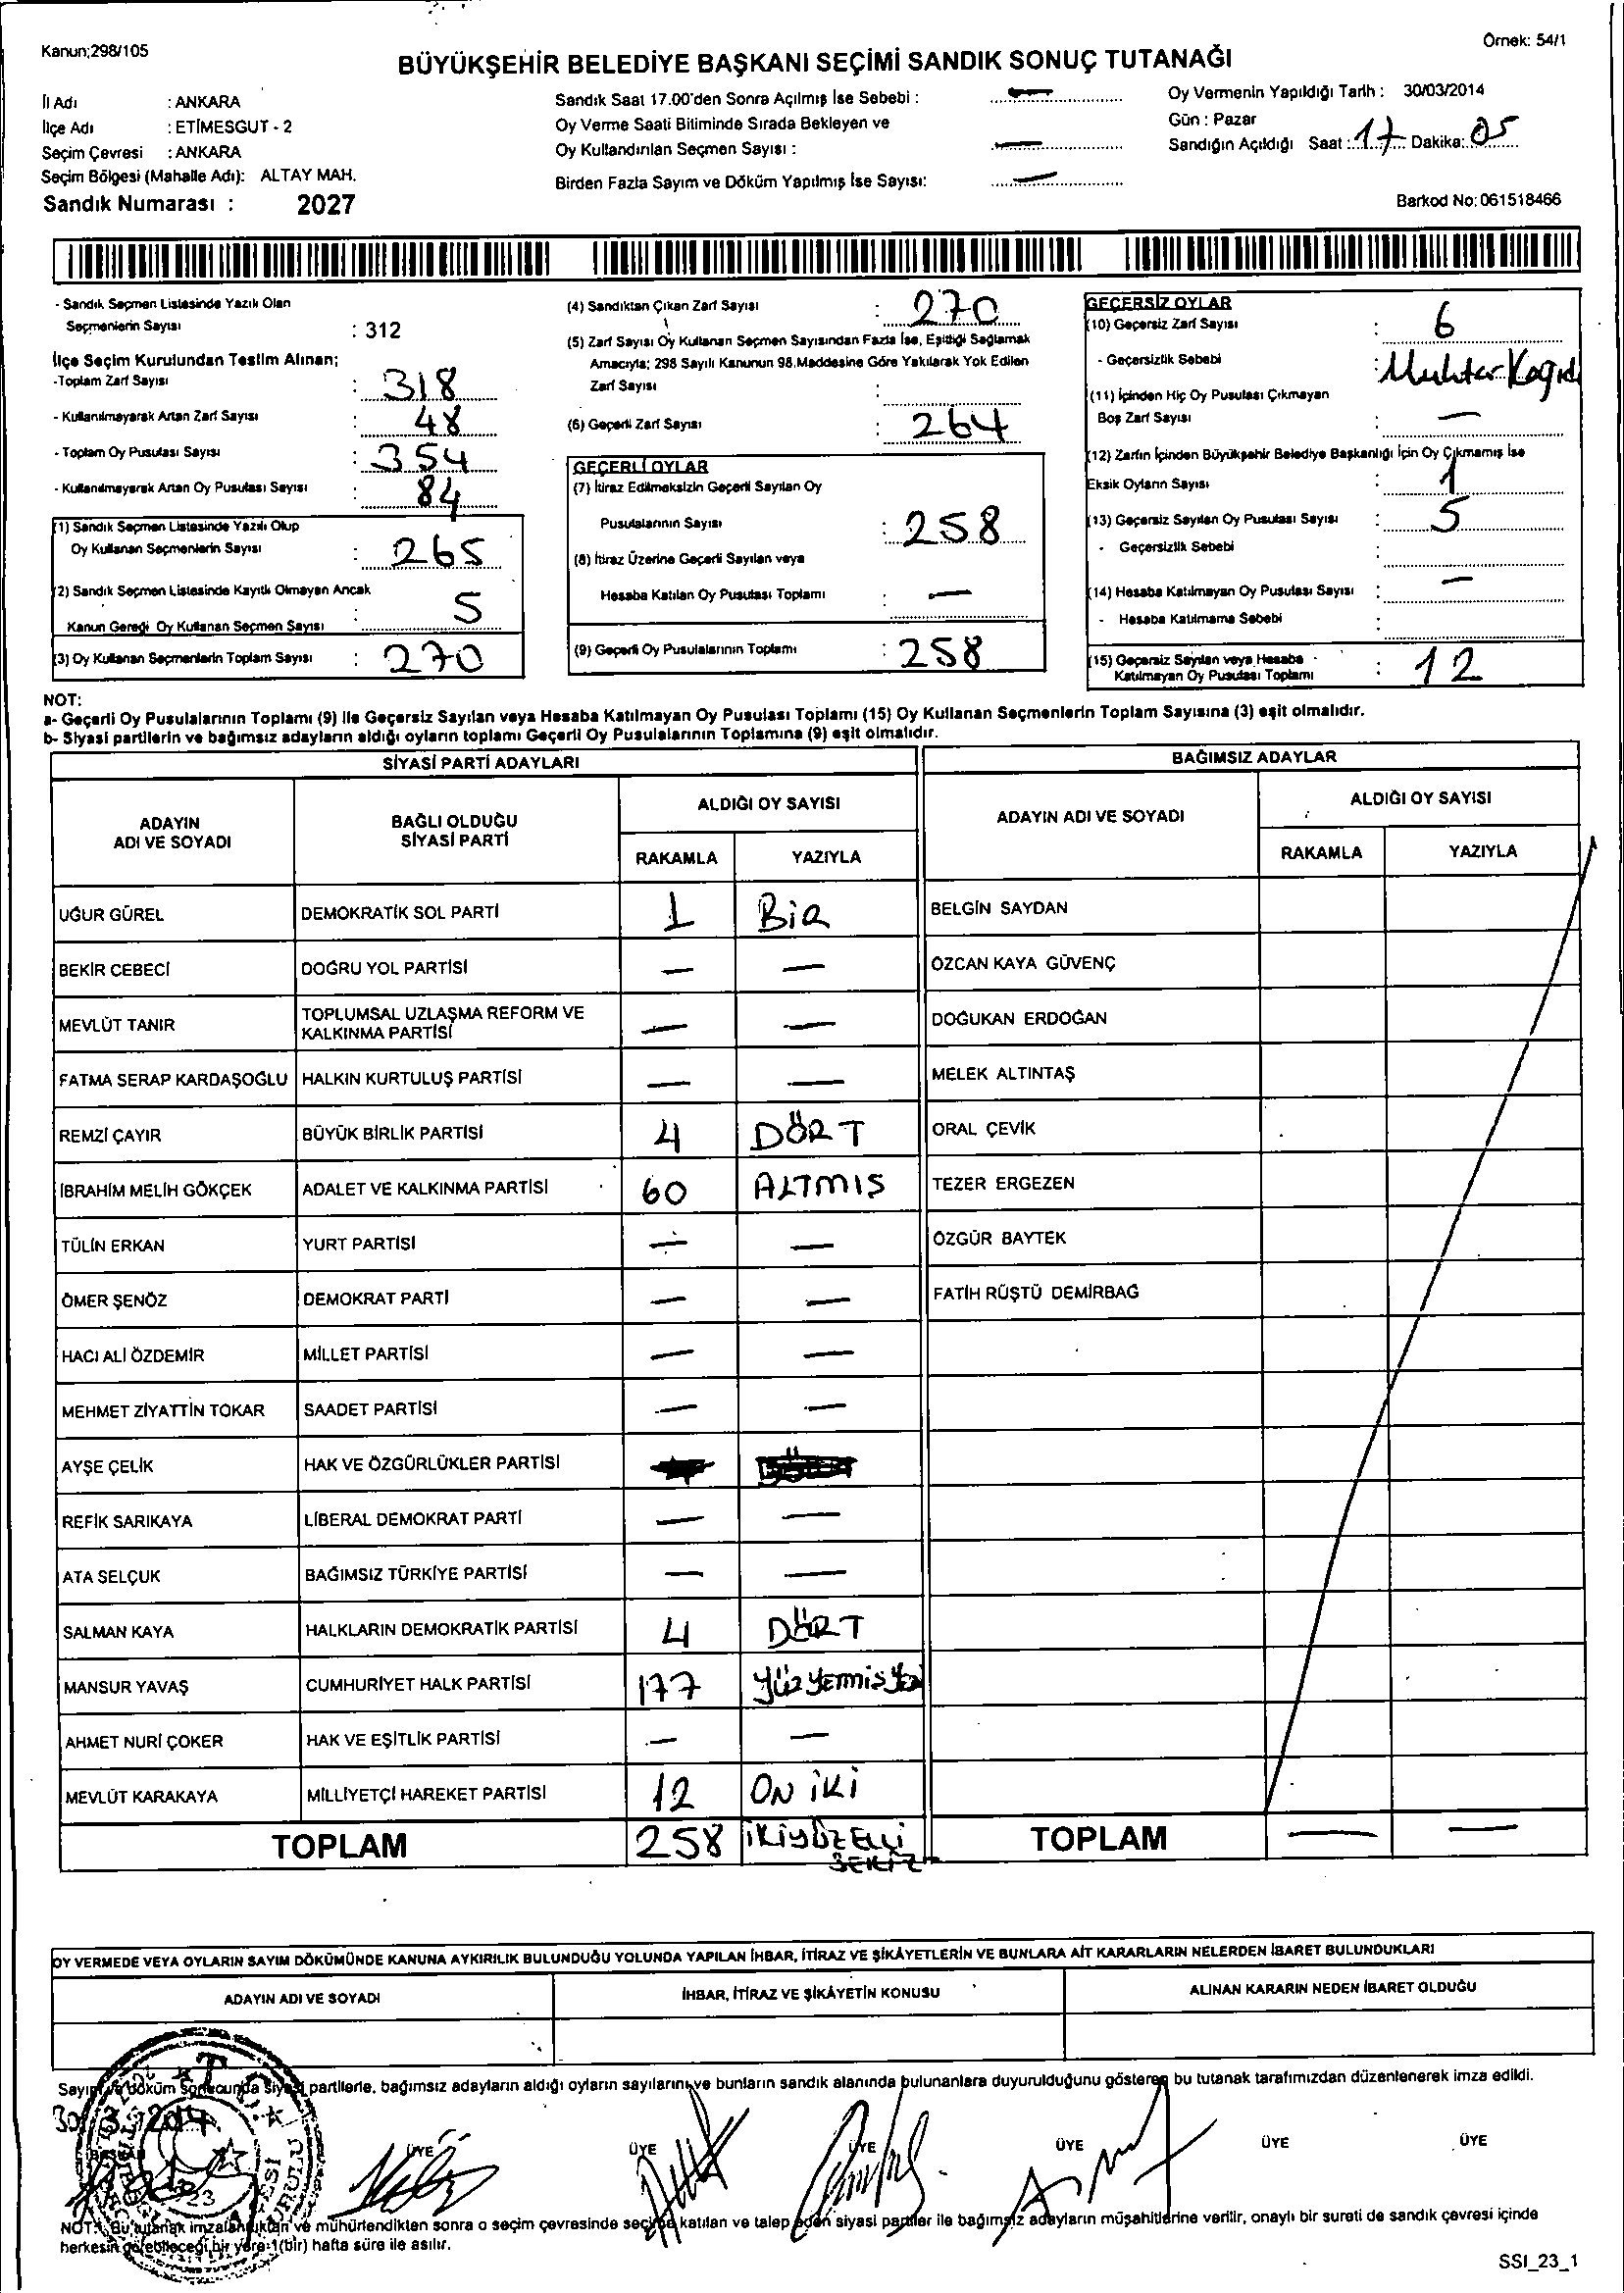 Kanun;298/105
Örnek: 54/1
BÜYÜKŞEHİR BELEDİYE BAŞKANI SEÇİMİ SANDIK SONUÇ TUTANAĞI
İl Adı : ANKARA
İlçe Adı : ETİMESGUT - 2
Seçim Çevresi : ANKARA
Seçim Bölgesi (Mahalle Adı): ALTAY MAH.
Sandık Numarası : 2027
Sandık Saat 17.00'den Sonra Açılmış İse Sebebi : —
Oy Verme Saati Bitiminde Sırada Bekleyen ve
Oy Kullandırılan Seçmen Sayısı : —
Birden Fazla Sayım ve Döküm Yapılmış İse Sayısı: —
Oy Vermenin Yapıldığı Tarih : 30/03/2014
Gün : Pazar
Sandığın Açıldığı Saat : 17 Dakika: 05
Barkod No: 061518466
- Sandık Seçmen Listesinde Yazılı Olan
Seçmenlerin Sayısı : 312
İlçe Seçim Kurulundan Teslim Alınan;
-Toplam Zarf Sayısı : 318
- Kullanılmayarak Artan Zarf Sayısı : 48
- Toplam Oy Pusulası Sayısı : 354
- Kullanılmayarak Artan Oy Pusulası Sayısı : 84
(1) Sandık Seçmen Listesinde Yazılı Olup
Oy Kullanan Seçmenlerin Sayısı : 265
(2) Sandık Seçmen Listesinde Kayıtlı Olmayan Ancak
Kanun Gereği Oy Kullanan Seçmen Sayısı : 5
(3) Oy Kullanan Seçmenlerin Toplam Sayısı : 270
(4) Sandıktan Çıkan Zarf Sayısı : 270
(5) Zarf Sayısı Oy Kullanan Seçmen Sayısından Fazla İse, Eşitliği Sağlamak
Amacıyla; 298 Sayılı Kanunun 98.Maddesine Göre Yakılarak Yok Edilen
Zarf Sayısı :
(6) Geçerli Zarf Sayısı : 264
GEÇERLİ OYLAR
(7) İtiraz Edilmeksizin Geçerli Sayılan Oy
Pusulalarının Sayısı : 258
(8) İtiraz Üzerine Geçerli Sayılan veya
Hesaba Katılan Oy Pusulası Toplamı : —
(9) Geçerli Oy Pusulalarının Toplamı : 258
GEÇERSİZ OYLAR
(10) Geçersiz Zarf Sayısı : 6
- Geçersizlik Sebebi : Muhtar Kağıdı
(11) İçinden Hiç Oy Pusulası Çıkmayan
Boş Zarf Sayısı : —
(12) Zarfın İçinden Büyükşehir Belediye Başkanlığı İçin Oy Çıkmamış İse
Eksik Oyların Sayısı : 1
(13) Geçersiz Sayılan Oy Pusulası Sayısı : 5
- Geçersizlik Sebebi :
(14) Hesaba Katılmayan Oy Pusulası Sayısı : —
- Hesaba Katılmama Sebebi :
(15) Geçersiz Sayılan veya Hesaba
Katılmayan Oy Pusulası Toplamı : 12
NOT:
a- Geçerli Oy Pusulalarının Toplamı (9) ile Geçersiz Sayılan veya Hesaba Katılmayan Oy Pusulası Toplamı (15) Oy Kullanan Seçmenlerin Toplam Sayısına (3) eşit olmalıdır.
b- Siyasi partilerin ve bağımsız adayların aldığı oyların toplamı Geçerli Oy Pusulalarının Toplamına (9) eşit olmalıdır.
SİYASİ PARTİ ADAYLARI
ADAYIN ADI VE SOYADI
BAĞLI OLDUĞU SİYASİ PARTİ
ALDIĞI OY SAYISI
RAKAMLA YAZIYLA
UĞUR GÜREL DEMOKRATİK SOL PARTİ 1 BİR
BEKİR CEBECİ DOĞRU YOL PARTİSİ — —
MEVLÜT TANIR TOPLUMSAL UZLAŞMA REFORM VE KALKINMA PARTİSİ — —
FATMA SERAP KARDAŞOĞLU HALKIN KURTULUŞ PARTİSİ — —
REMZİ ÇAYIR BÜYÜK BİRLİK PARTİSİ 4 DÖRT
İBRAHİM MELİH GÖKÇEK ADALET VE KALKINMA PARTİSİ 60 ALTMIS
TÜLİN ERKAN YURT PARTİSİ — —
ÖMER ŞENÖZ DEMOKRAT PARTİ — —
HACI ALİ ÖZDEMİR MİLLET PARTİSİ — —
MEHMET ZİYATTİN TOKAR SAADET PARTİSİ — —
AYŞE ÇELİK HAK VE ÖZGÜRLÜKLER PARTİSİ
REFİK SARIKAYA LİBERAL DEMOKRAT PARTİ — —
ATA SELÇUK BAĞIMSIZ TÜRKİYE PARTİSİ — —
SALMAN KAYA HALKLARIN DEMOKRATİK PARTİSİ 4 DÖRT
MANSUR YAVAŞ CUMHURİYET HALK PARTİSİ 177 yüzyetmisyedi
AHMET NURİ ÇOKER HAK VE EŞİTLİK PARTİSİ — —
MEVLÜT KARAKAYA MİLLİYETÇİ HAREKET PARTİSİ 12 ON İKİ
TOPLAM 258 İKİYÜZELLİ SEKİZ
BAĞIMSIZ ADAYLAR
ADAYIN ADI VE SOYADI
ALDIĞI OY SAYISI
RAKAMLA YAZIYLA
BELGİN SAYDAN
ÖZCAN KAYA GÜVENÇ
DOĞUKAN ERDOĞAN
MELEK ALTINTAŞ
ORAL ÇEVİK
TEZER ERGEZEN
ÖZGÜR BAYTEK
FATİH RÜŞTÜ DEMİRBAĞ
TOPLAM — —
OY VERMEDE VEYA OYLARIN SAYIM DÖKÜMÜNDE KANUNA AYKIRILIK BULUNDUĞU YOLUNDA YAPILAN İHBAR, İTİRAZ VE ŞİKÂYETLERİN VE BUNLARA AİT KARARLARIN NELERDEN İBARET BULUNDUKLARI
ADAYIN ADI VE SOYADI İHBAR, İTİRAZ VE ŞİKÂYETİN KONUSU ALINAN KARARIN NEDEN İBARET OLDUĞU
Sayım ve döküm sonucunda siyasi partilerle, bağımsız adayların aldığı oyların sayılarını ve bunların sandık alanında bulunanlara duyurulduğunu gösteren bu tutanak tarafımızdan düzenlenerek imza edildi.
30/3/2014
BAŞKAN ÜYE ÜYE ÜYE ÜYE ÜYE ÜYE
NOT: Bu tutanak imzalandıktan ve mühürlendikten sonra o seçim çevresinde seçime katılan ve talep eden siyasi partiler ile bağımsız adayların müşahitlerine verilir, onaylı bir sureti de sandık çevresi içinde
herkesin görebileceği bir yere 1(bir) hafta süre ile asılır.
SSI_23_1